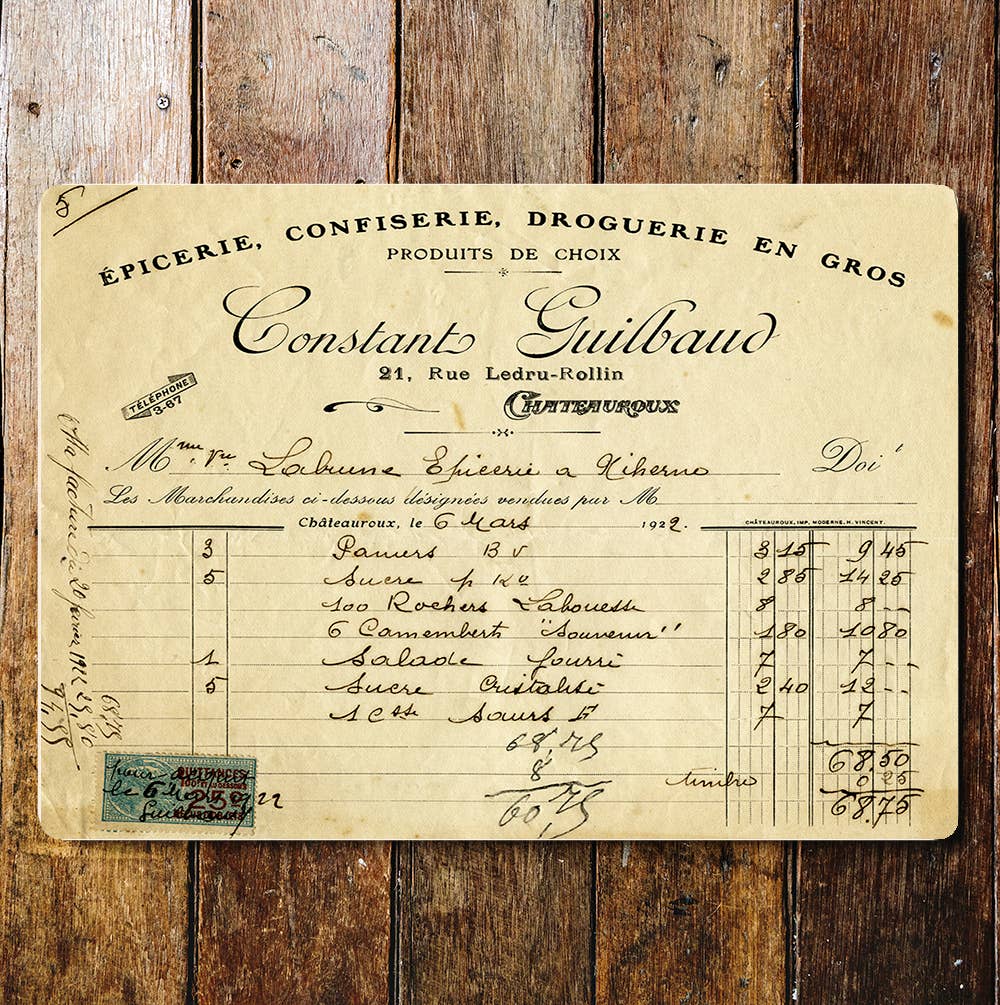 ÉPICERIE, CONFISERIE, DROGUERIE EN GROS
PRODUITS DE CHOIX
Constant Guilbaud
21, Rue Ledru-Rollin
TÉLÉPHONE
3-67
CHATEAUROUX
Mme Vve Labrune Epicerie a Niherne Doit
Les Marchandises ci-dessous désignées vendues par M
Châteauroux, le 6 Mars 1922.
CHÂTEAUROUX, IMP. MODERNE, H. VINCENT.
3 Paniers B v 3 15 9 45
5 Sucre p Ko 2 85 14 25
100 Rochers Labouesse 8 8 --
6 Camemberts "Souvenir" 1 80 10 80
1 Salade fourré 7 7 --
5 Sucre Cristalisé 2 40 12 --
1 Csse Saurs F 7 7
68,75
8
60,75
68.50
timbre 0 25
68.75
Ma facture du 20 février 1922 29,80
68,75
QUITTANCES
25c
pour acquit
le 6 Mars 22
Guilbaud